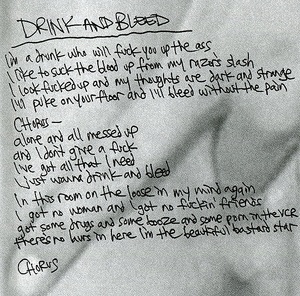 DRINK AND BLEED
I'm a drunk who will fuck you up the ass
I like to suck the blood up from my razor's slash
I look fucked up and my thoughts are dark and strange
I'll puke on your floor and I'll bleed without the pain
CHORUS —
alone and all messed up
and I don't give a fuck
I've got all that I need
I just wanna drink and bleed
In this room on the loose in my mind again
I got no woman and I got no fuckin' friends
got some drugs and some booze and some porn in the VCR
there's no hurs in here I'm the beautiful bastard star
CHORUS